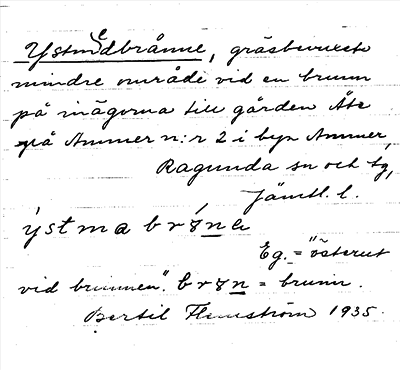 Ystmedbrånne, gräsbevuxet
mindre område vid en brunn
på inägorna till gården Åse
på Ammer n:r 2 i byn Ammer,
Ragunda sn och tg,
Jämtl. l.
ýstmabró̤na
Eg. = "österut
vid brunnen". brɤn = brunn.
Bertil Flemström 1935.